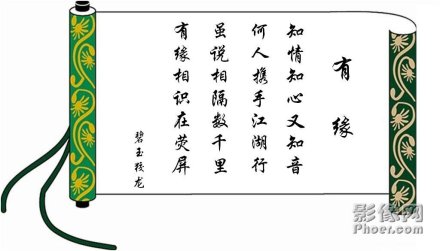 有缘
知情知心又知音
何人携手江湖行
虽说相隔数千里
有缘相识在荧屏
碧玉蛟龙
影像网
Phoer.com